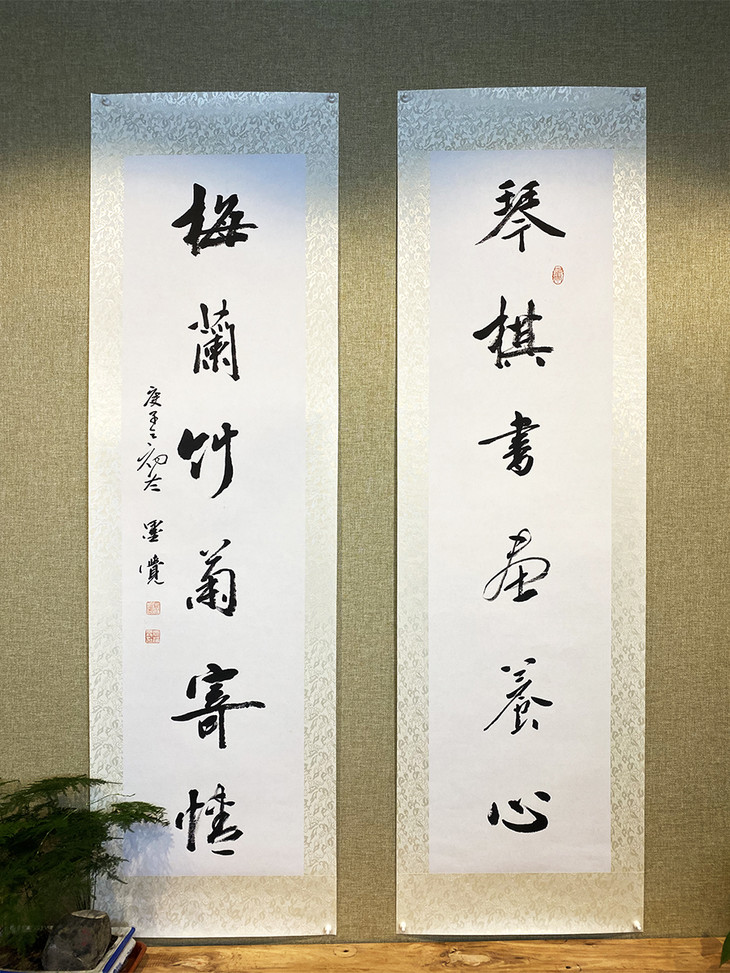 琴棋書畫養心
梅蘭竹菊寄情
庚子之初
墨